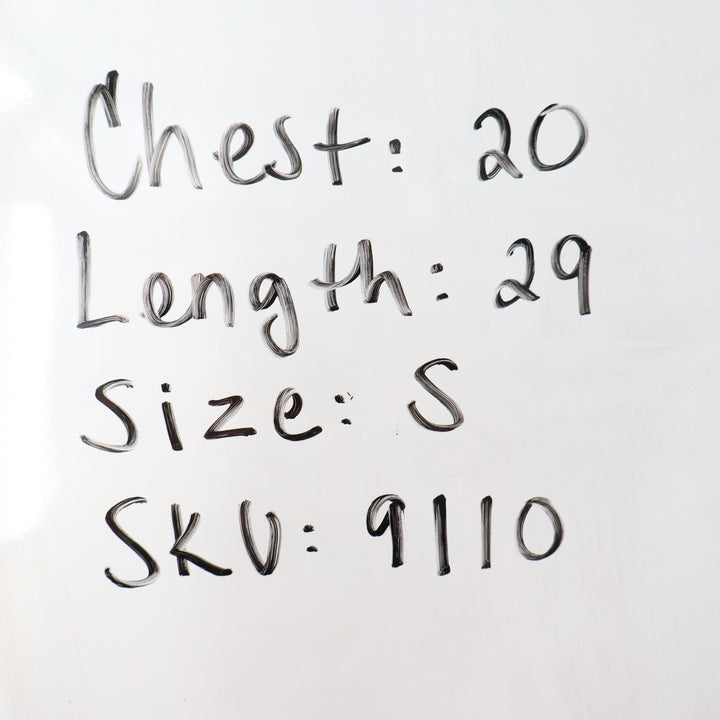 Chest: 20
Length: 29
Size: S
SKU: 9110